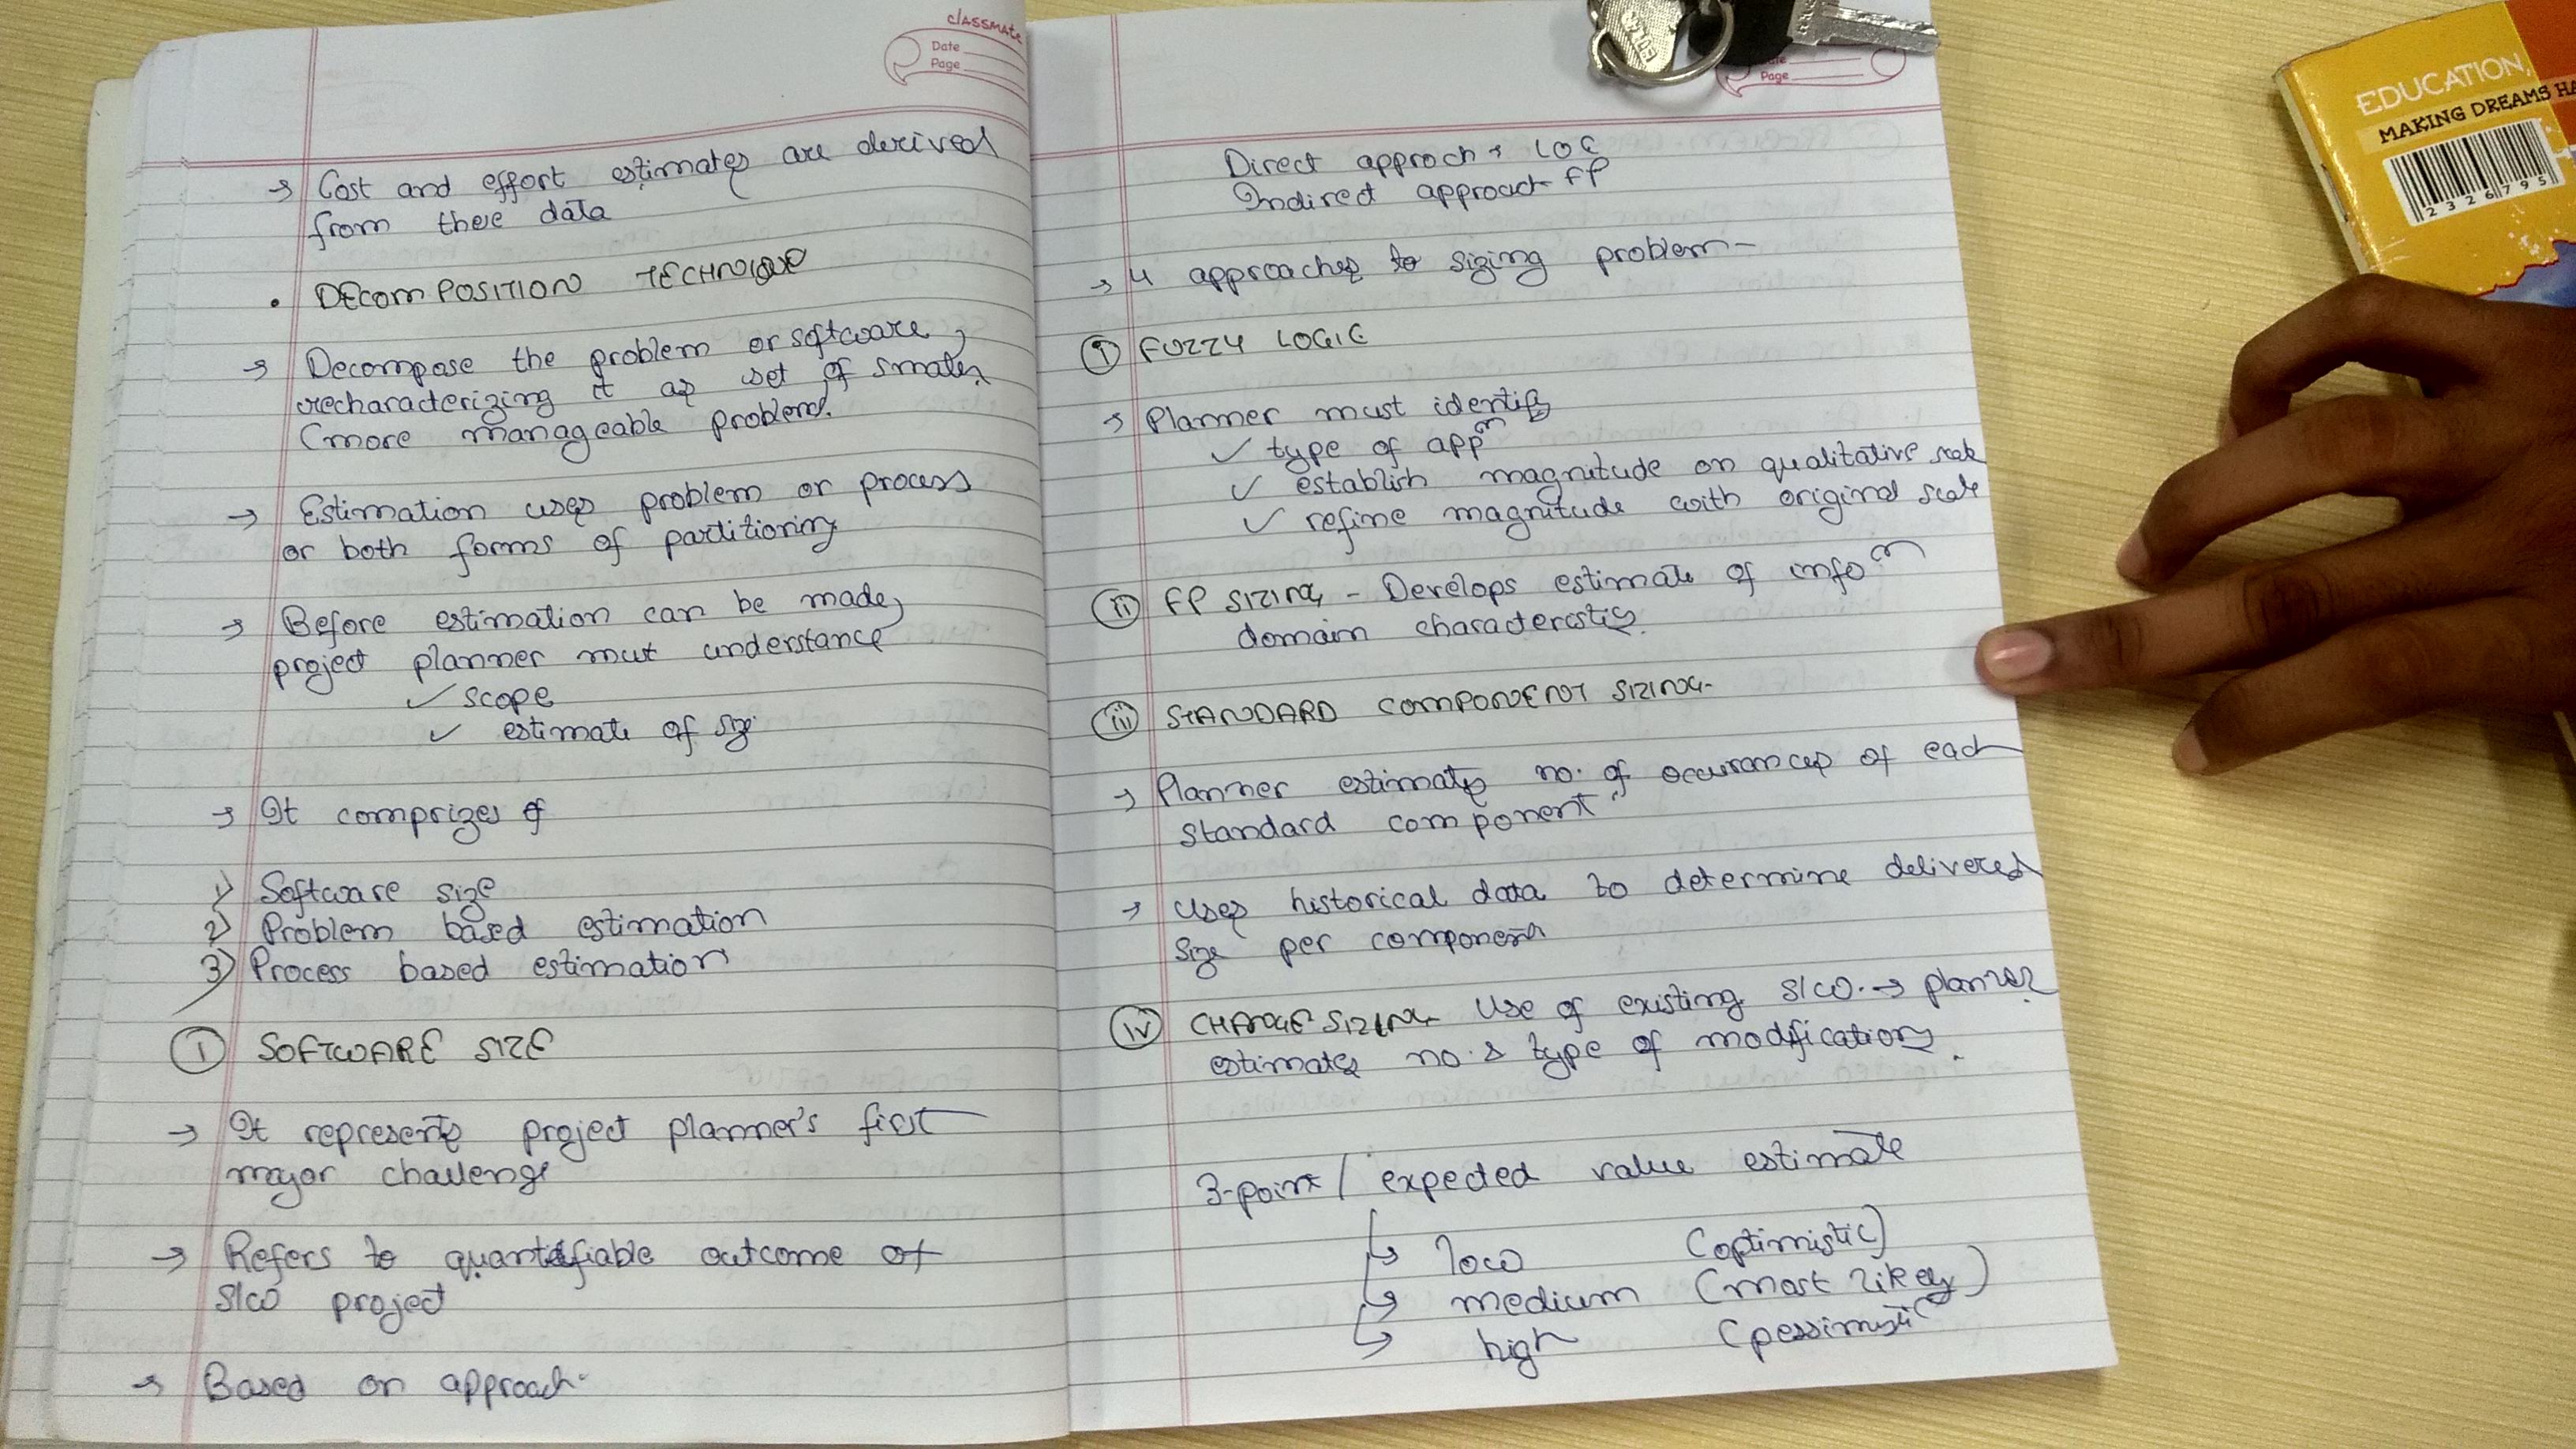 classmate
Date
Page
→ Cost and effort estimates are derived
from these data
• DECOMPOSITION TECHNIQUE
→ Decompose the problem or software,
recharacterizing it as set of smaller
(more manageable problem).
→ Estimation uses problem or process
or both forms of partitioning
→ Before estimation can be made,
project planner must understance
✓ scope
✓ estimate of size
→ It comprizes of
1) Software size
2) Problem based estimation
3) Process based estimation
① SOFTWARE SIZE
→ It represents project planner's first
major challenge
→ Refers to quantifiable outcome of
S/W project
→ Based on approach-
Date
Page
Direct approch → LOC
Indirect approach FP
→ 4 approaches to sizing problem -
(i) FUZZY LOGIC
→ Planner must identify
✓ type of appⁿ
✓ establish magnitude on qualitative scale
✓ refine magnitude with original scale
(ii) FP SIZING - Develops estimate of infoⁿ
domain characteristics.
(iii) STANDARD COMPONENT SIZING-
→ Planner estimates no. of occurances of each
"standard component"
→ Uses historical data to determine delivered
size per component
(iv) CHANGE SIZING Use of existing S/W. → planner
estimates no. & type of modifications.
3-point / expected value estimate
↳ low (optimistic)
↳ medium (most likely)
↳ high (pessimistic
EDUCATION,
MAKING DREAMS HA
2326795